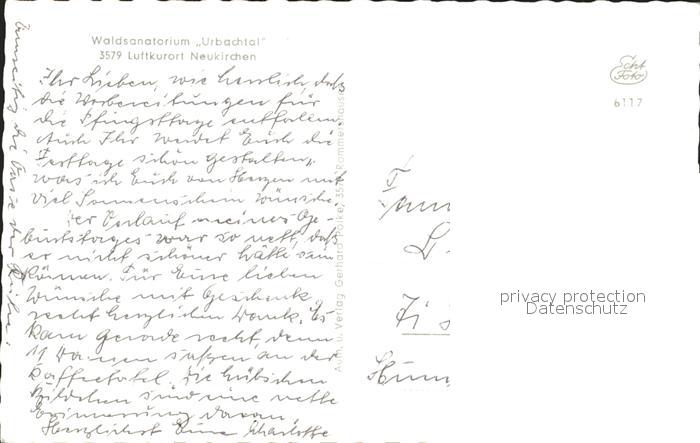 Waldsanatorium „Urbachtal"
3579 Luftkurort Neukirchen
Ihr Lieben, wie herrlich, daß
die Vorbereitungen für
die Pfingsttage entfallen.
Auch Ihr werdet Euch die
Festtage schön gestalten,
was ich Euch von Herzen mit
viel Sonnenschein wünsche.
Der Verlauf meines Ge-
burtstages war so nett, daß
er nicht schöner hätte sein
können. Für Eure lieben
Wünsche mit Geschenk
recht herzlichen Dank. Es
kam gerade recht, denn
11 Damen saßen an der
Kaffeetafel. Die hübschen
Bildchen sind eine nette
Erinnerung davon.
Herzlichst Eure Charlotte
der Ruhe.
Aufn. u. Verlag Gerhard
Echt
Foto
6117
Fam
privacy protection
Datenschutz